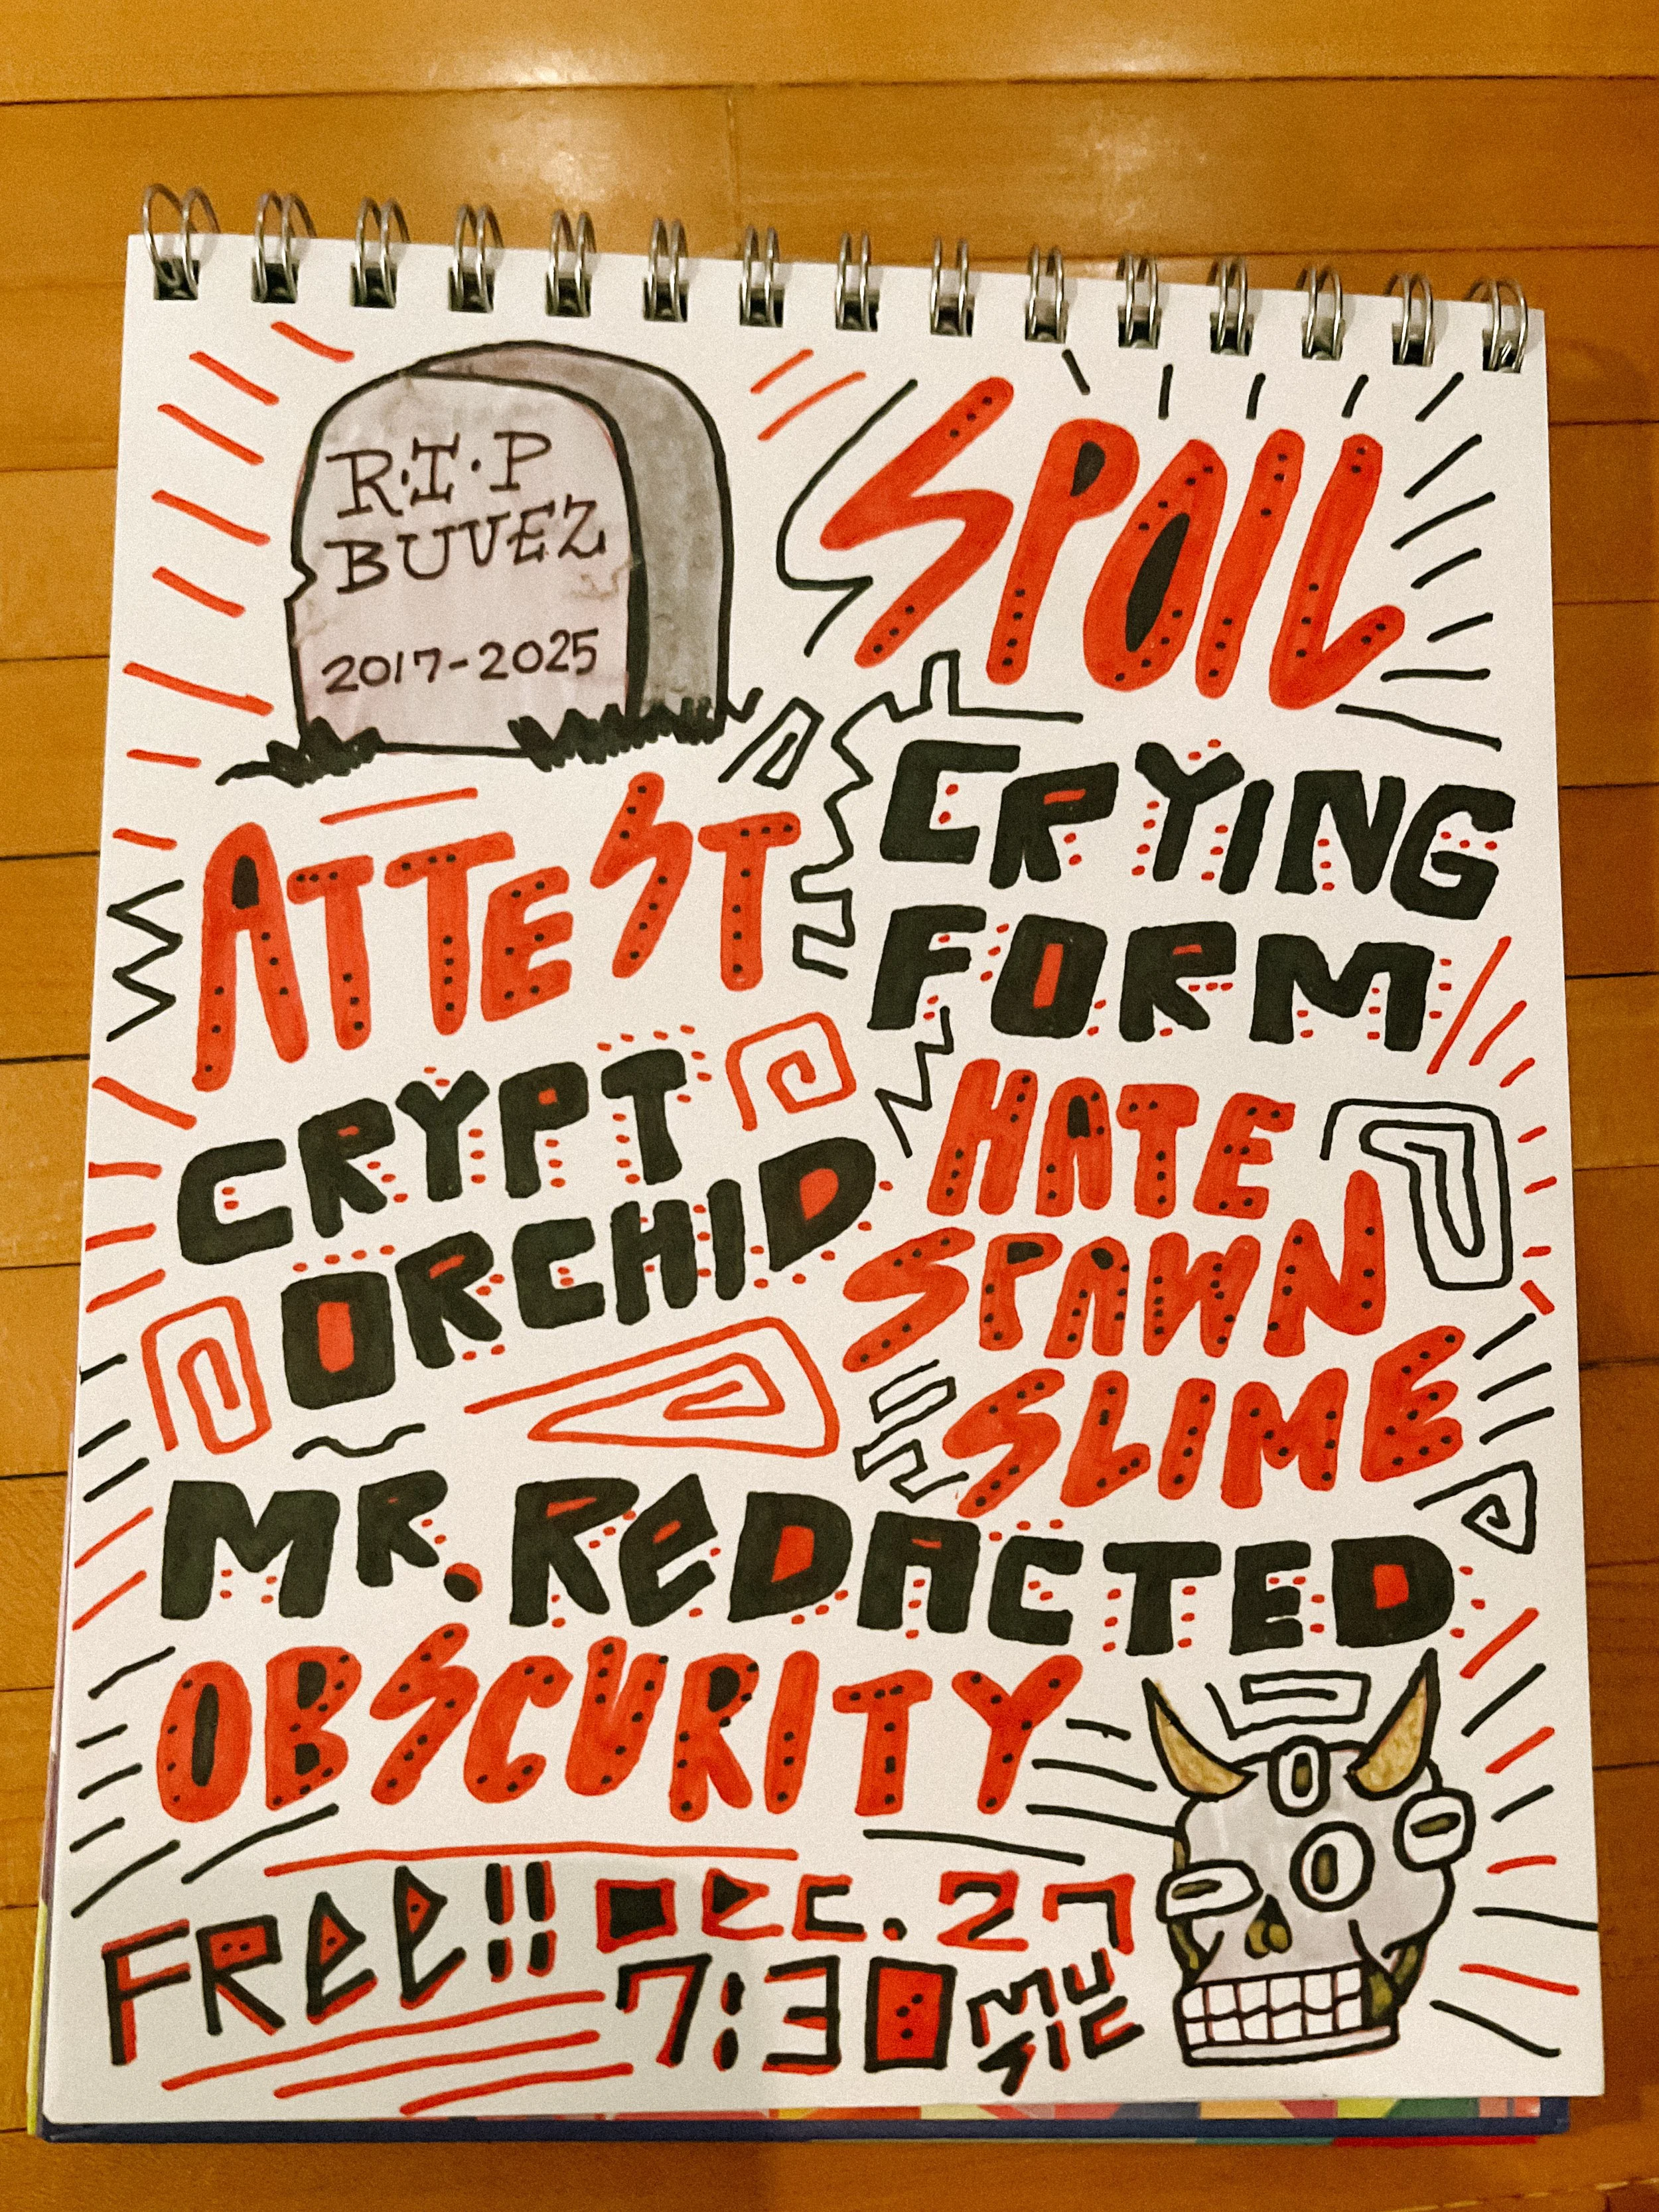 R.I.P
BUVEZ
2017-2025
SPOIL
CRYING
FORM
ATTEST
CRYPT
ORCHID
HATE
SPAWN
SLIME
MR. REDACTED
OBSCURITY
FREE!! DEC. 27
7:30 MUSIC